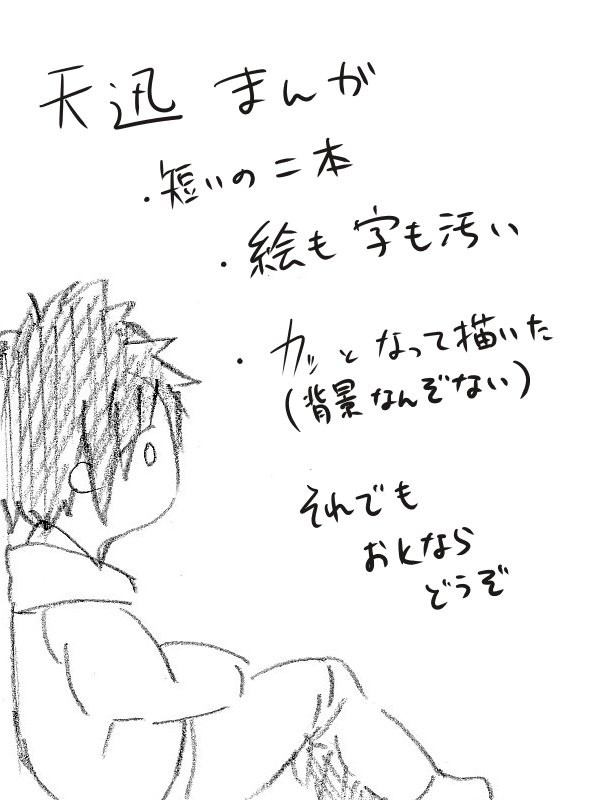 天迅 まんが
・短いの二本
・絵も字も汚い
・カッとなって描いた
(背景なんぞない)
それでも
おkなら
どうぞ